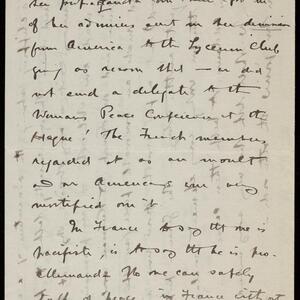 her propaganda
of her admirers sent in her
from America to the Lyceum Club
giving as reason that we did
not send a delegate to the
Womans Peace Conference at the
Hague! The French members
regarded it as an insult
and we Americans were very
mortified over it
In France to say tht one is
pacifist, is to say tht he is pro-
Allemande No one can safely
talk of peace in France without